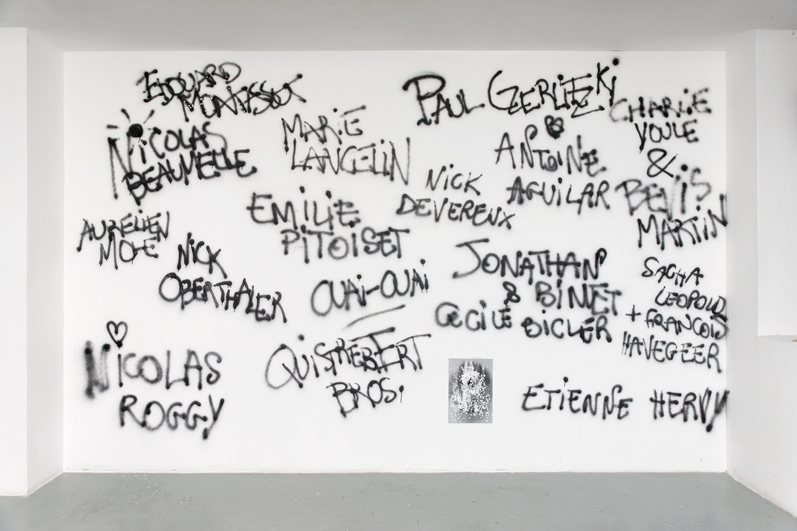 EDOUARD
MONTASSUT
PAUL GERLIEZKI
CHARLIE
YOULE
&
BEVIS
MARTIN
NICOLAS
BEAUMELLE
MARIE
LANCELIN
ANTOINE
AGUILAR
NICK
DEVEREUX
EMILIE
PITOISET
AURELIEN
MOLE
NICK
OBERTHALER
OUAI-OUAI
JONATHAN
& BINET
CECILE BICLER
SACHA
LEOPOLD
+ FRANCOIS
HAVEGEER
NICOLAS
ROGGY
QUISTREBERT
BROS.
ETIENNE HERVY